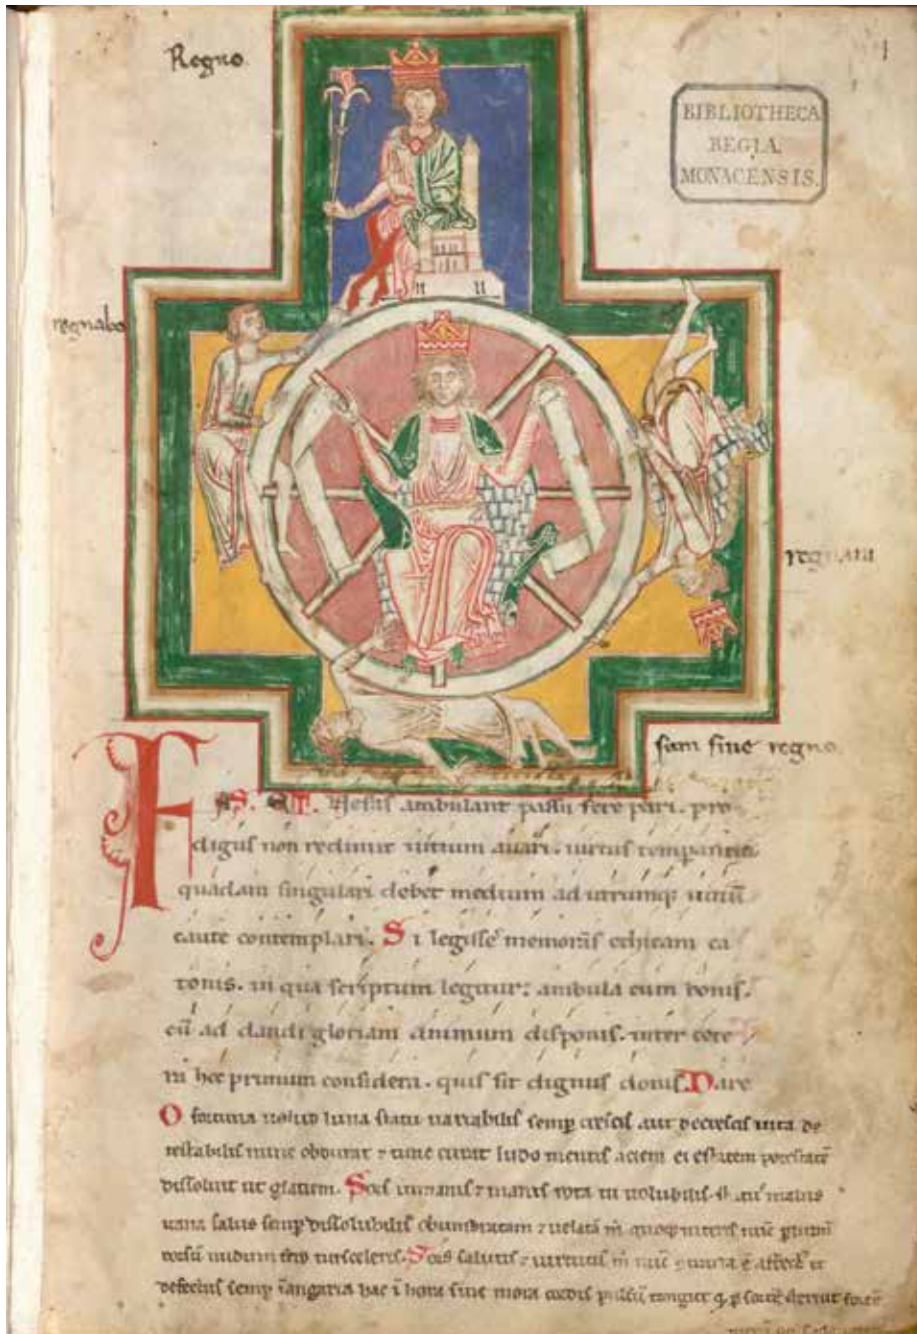 Regno.
BIBLIOTHECA
REGIA
MONACENSIS.
regnabo
regnaui
sum sine regno
FAS. ET. Nefas ambulant passu fere pari. pro-
digus non redimit uitium auari. uirtus temperantia
quadam singulari debet medium ad utrumq; uitiū
caute contemplari. Si legisse memoras ethicam ca
tonis. in qua scriptum legitur: ambula cum bonis.
cū ad dandi gloriam animum disponis. inter cete
ra hec primum considera. quis sit dignus donis. Dare
O fortuna uelud luna statu uariabilis semp crescis aut decrescis uita de
testabilis nunc obdurat & tunc curat ludo mentis aciem egestatem potestatē
dissoluit ut glatiem. Sors immanis & inanis rota tu uolubilis. status malus
uana salus semp dissolubilis obumbratam & uelatā m quoq;
dorsū nudum fero tui sceleris. Sors salutis & uirtutis m nunc
defectus semp ī angaria hac ī hora sine mora cordis pulsū tangite